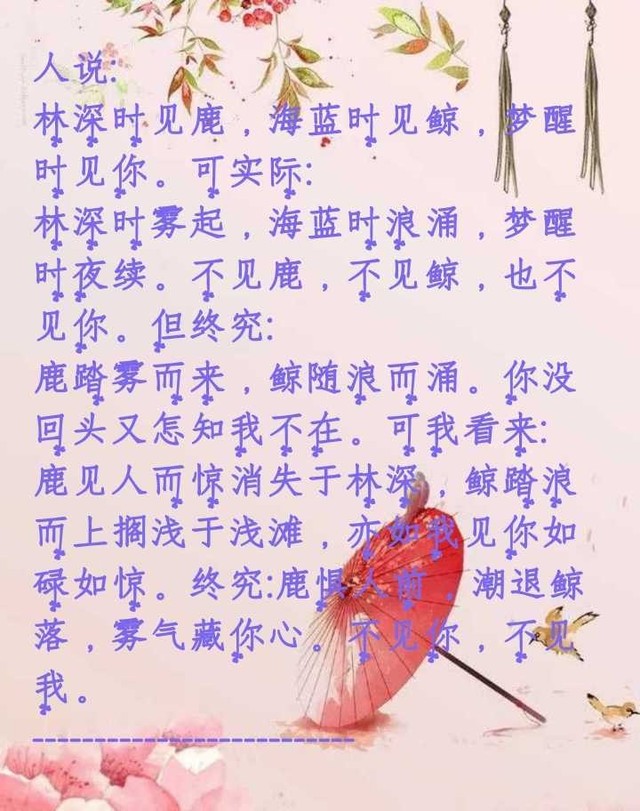 人说:
林深时见鹿，海蓝时见鲸，梦醒
时见你。可实际:
林深时雾起，海蓝时浪涌，梦醒
时夜续。不见鹿，不见鲸，也不
见你。但终究:
鹿踏雾而来，鲸随浪而涌。你没
回头又怎知我不在。可我看来:
鹿见人而惊消失于林深，鲸踏浪
而上搁浅于浅滩，亦如我见你如
碌如惊。终究:鹿惧人前，潮退鲸
落，雾气藏你心。不见你，不见
我。
--------------------------